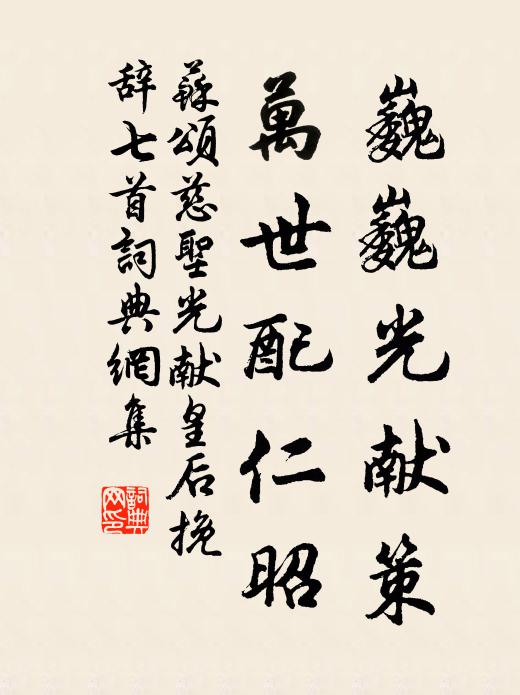 巍巍光献策
萬世配仁昭
蘇頌慈聖光献皇后挽
辞七首詞典網集
詞典網印